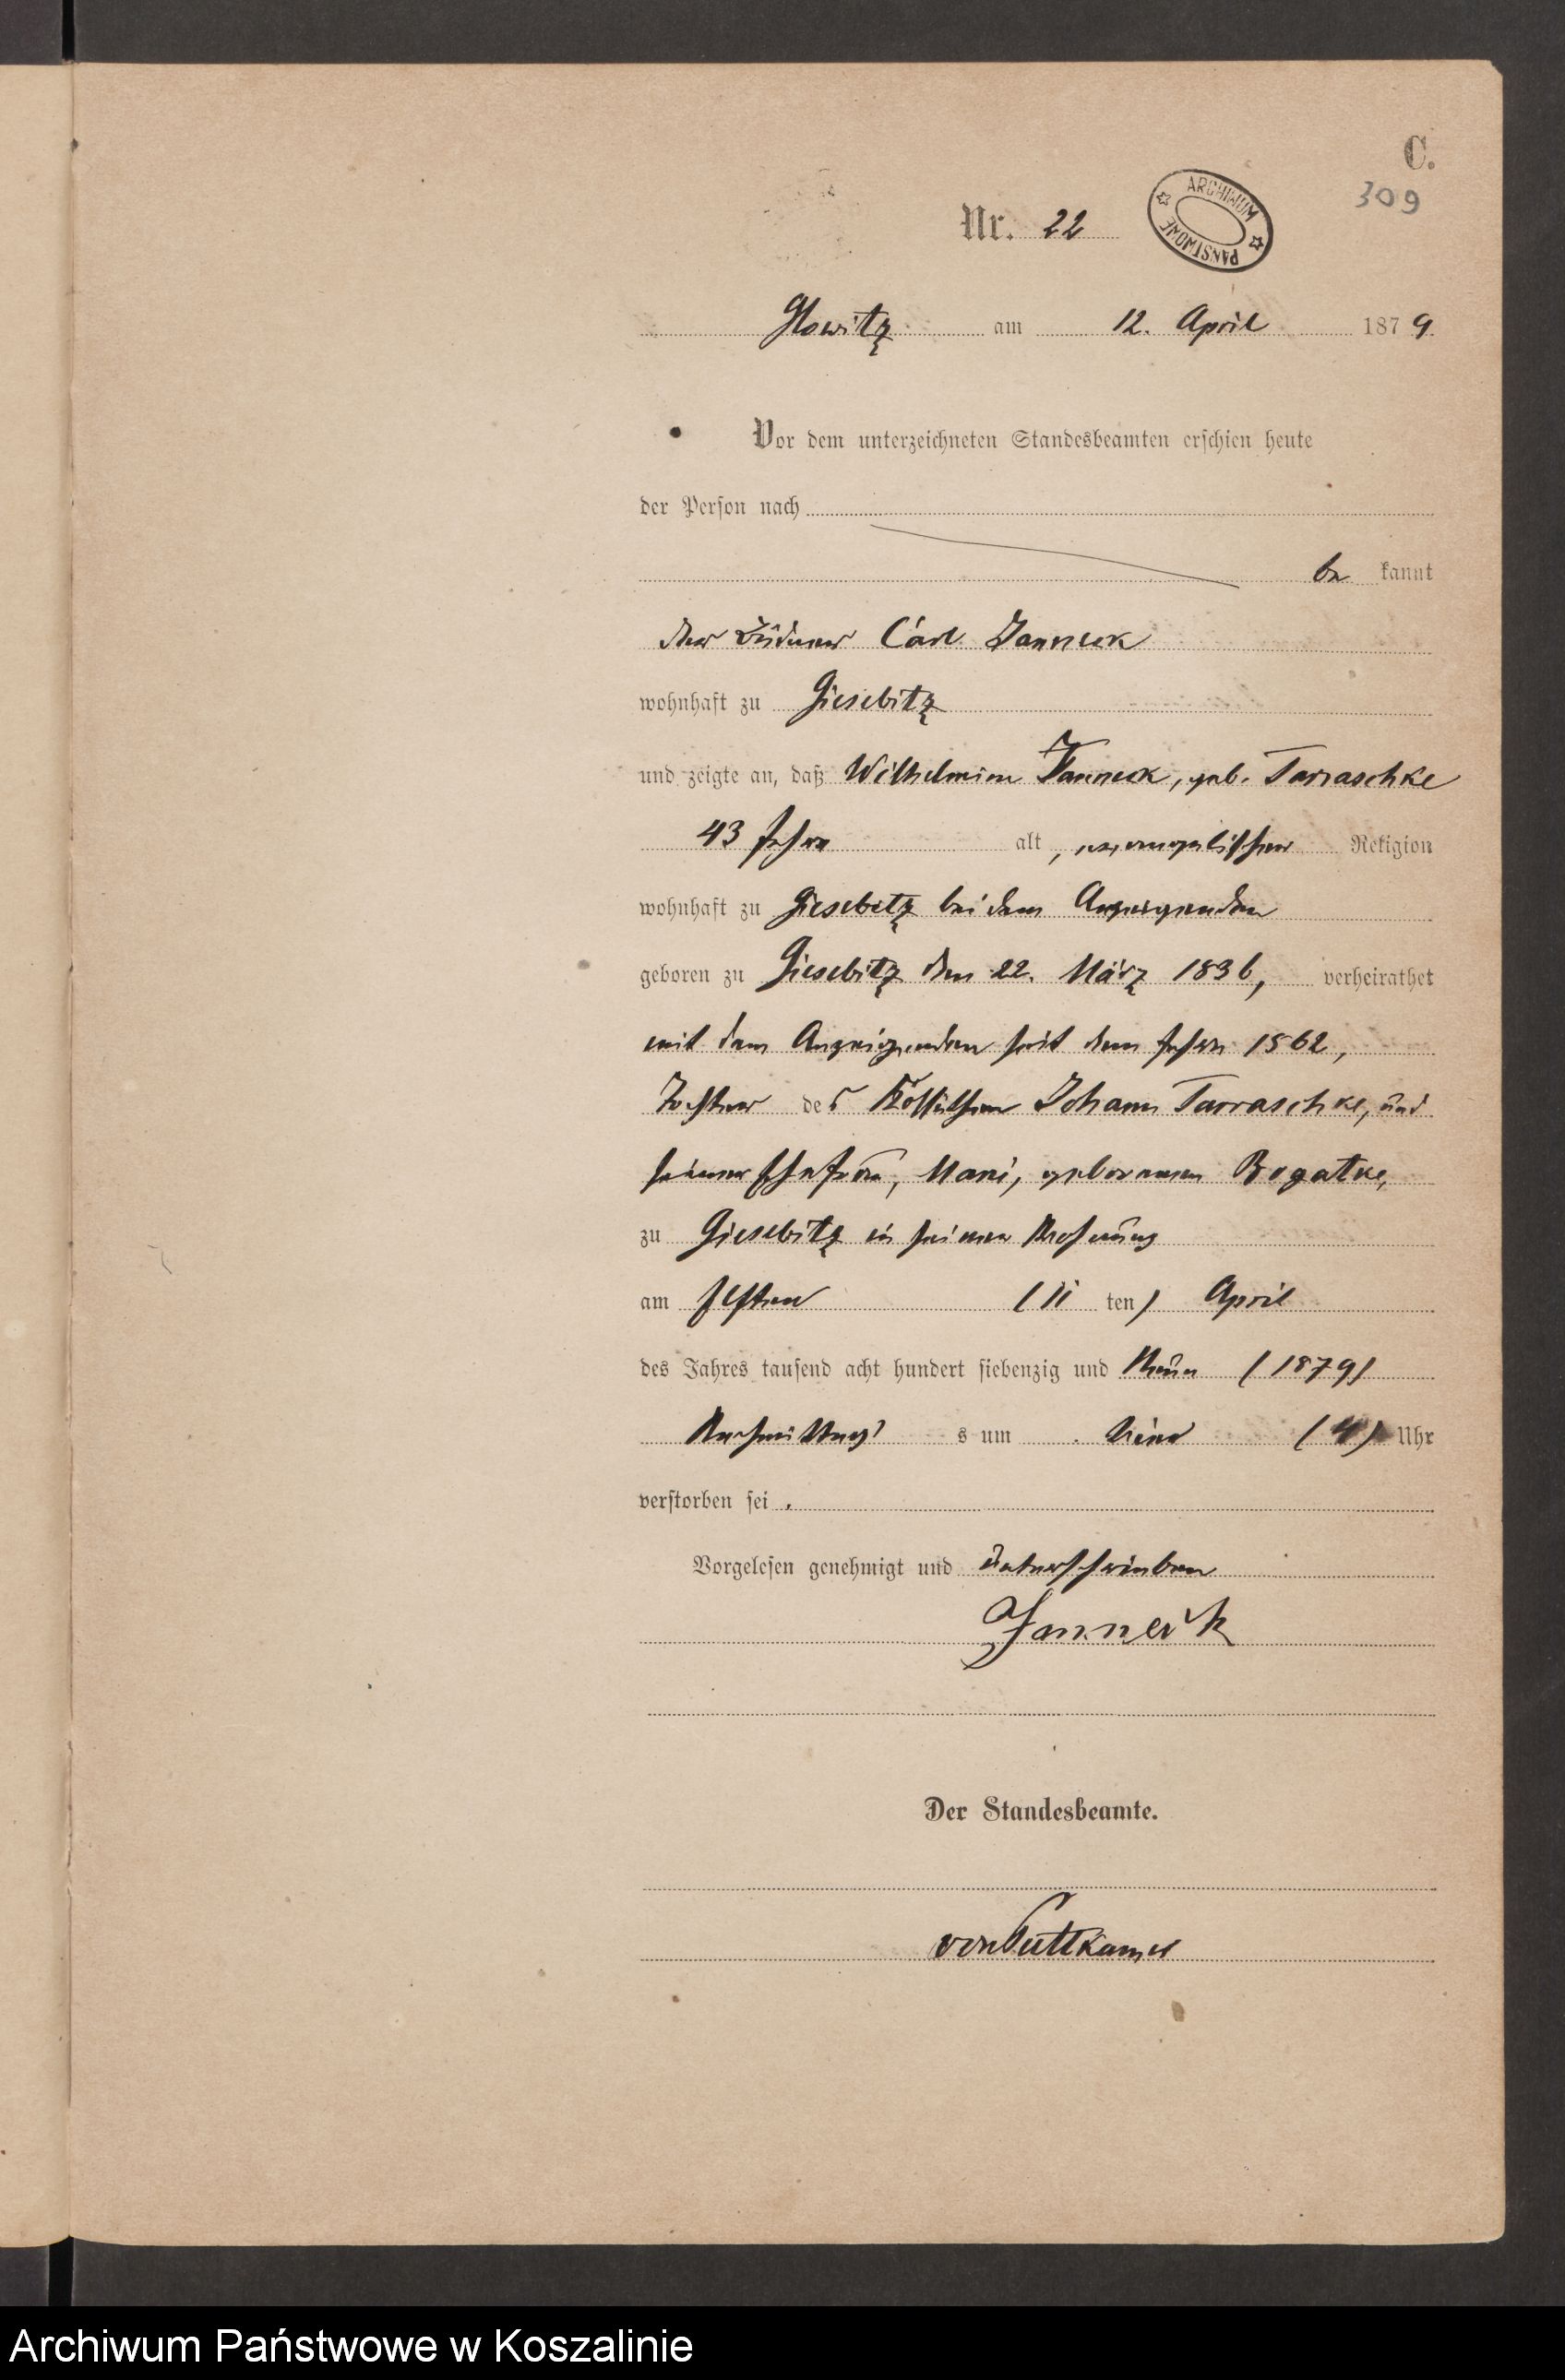 C.
309
Nr. 22
ARCHIWUM PAŃSTWOWE
Glowitz am 12. April 1879
Vor dem unterzeichneten Standesbeamten erschien heute
der Person nach
be kannt
der Büdner Carl Janneck
wohnhaft zu Giesebitz
und zeigte an, daß Wilhelmine Janneck, geb. Tarraschke
43 Jahre alt, evangelischer Religion
wohnhaft zu Giesebitz bei dem Anzeigenden
geboren zu Giesebitz den 22. März 1836, verheirathet
mit dem Anzeigenden seit dem Jahre 1862,
Tochter des Kossäthen Johann Tarraschke, und
seiner Ehefrau, Marie, geborenen Bogatke,
zu Giesebitz in seiner Wohnung
am Elften (11 ten) April
des Jahres tausend acht hundert siebenzig und Neun (1879)
Nachmittags um Vier (4) Uhr
verstorben sei.
Vorgelesen genehmigt und unterschrieben
Janneck
Der Standesbeamte.
von Puttkamer
Archiwum Państwowe w Koszalinie